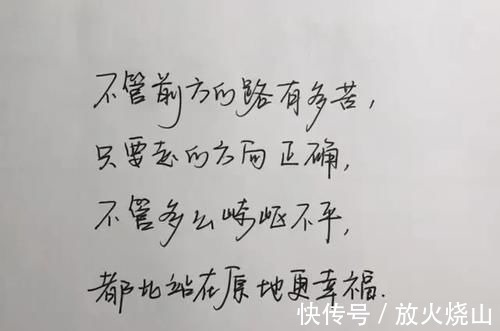 不管前方的路有多苦，
只要走的方向正确，
不管多么崎岖不平，
都比站在原地更幸福.
快传号/放火烧山